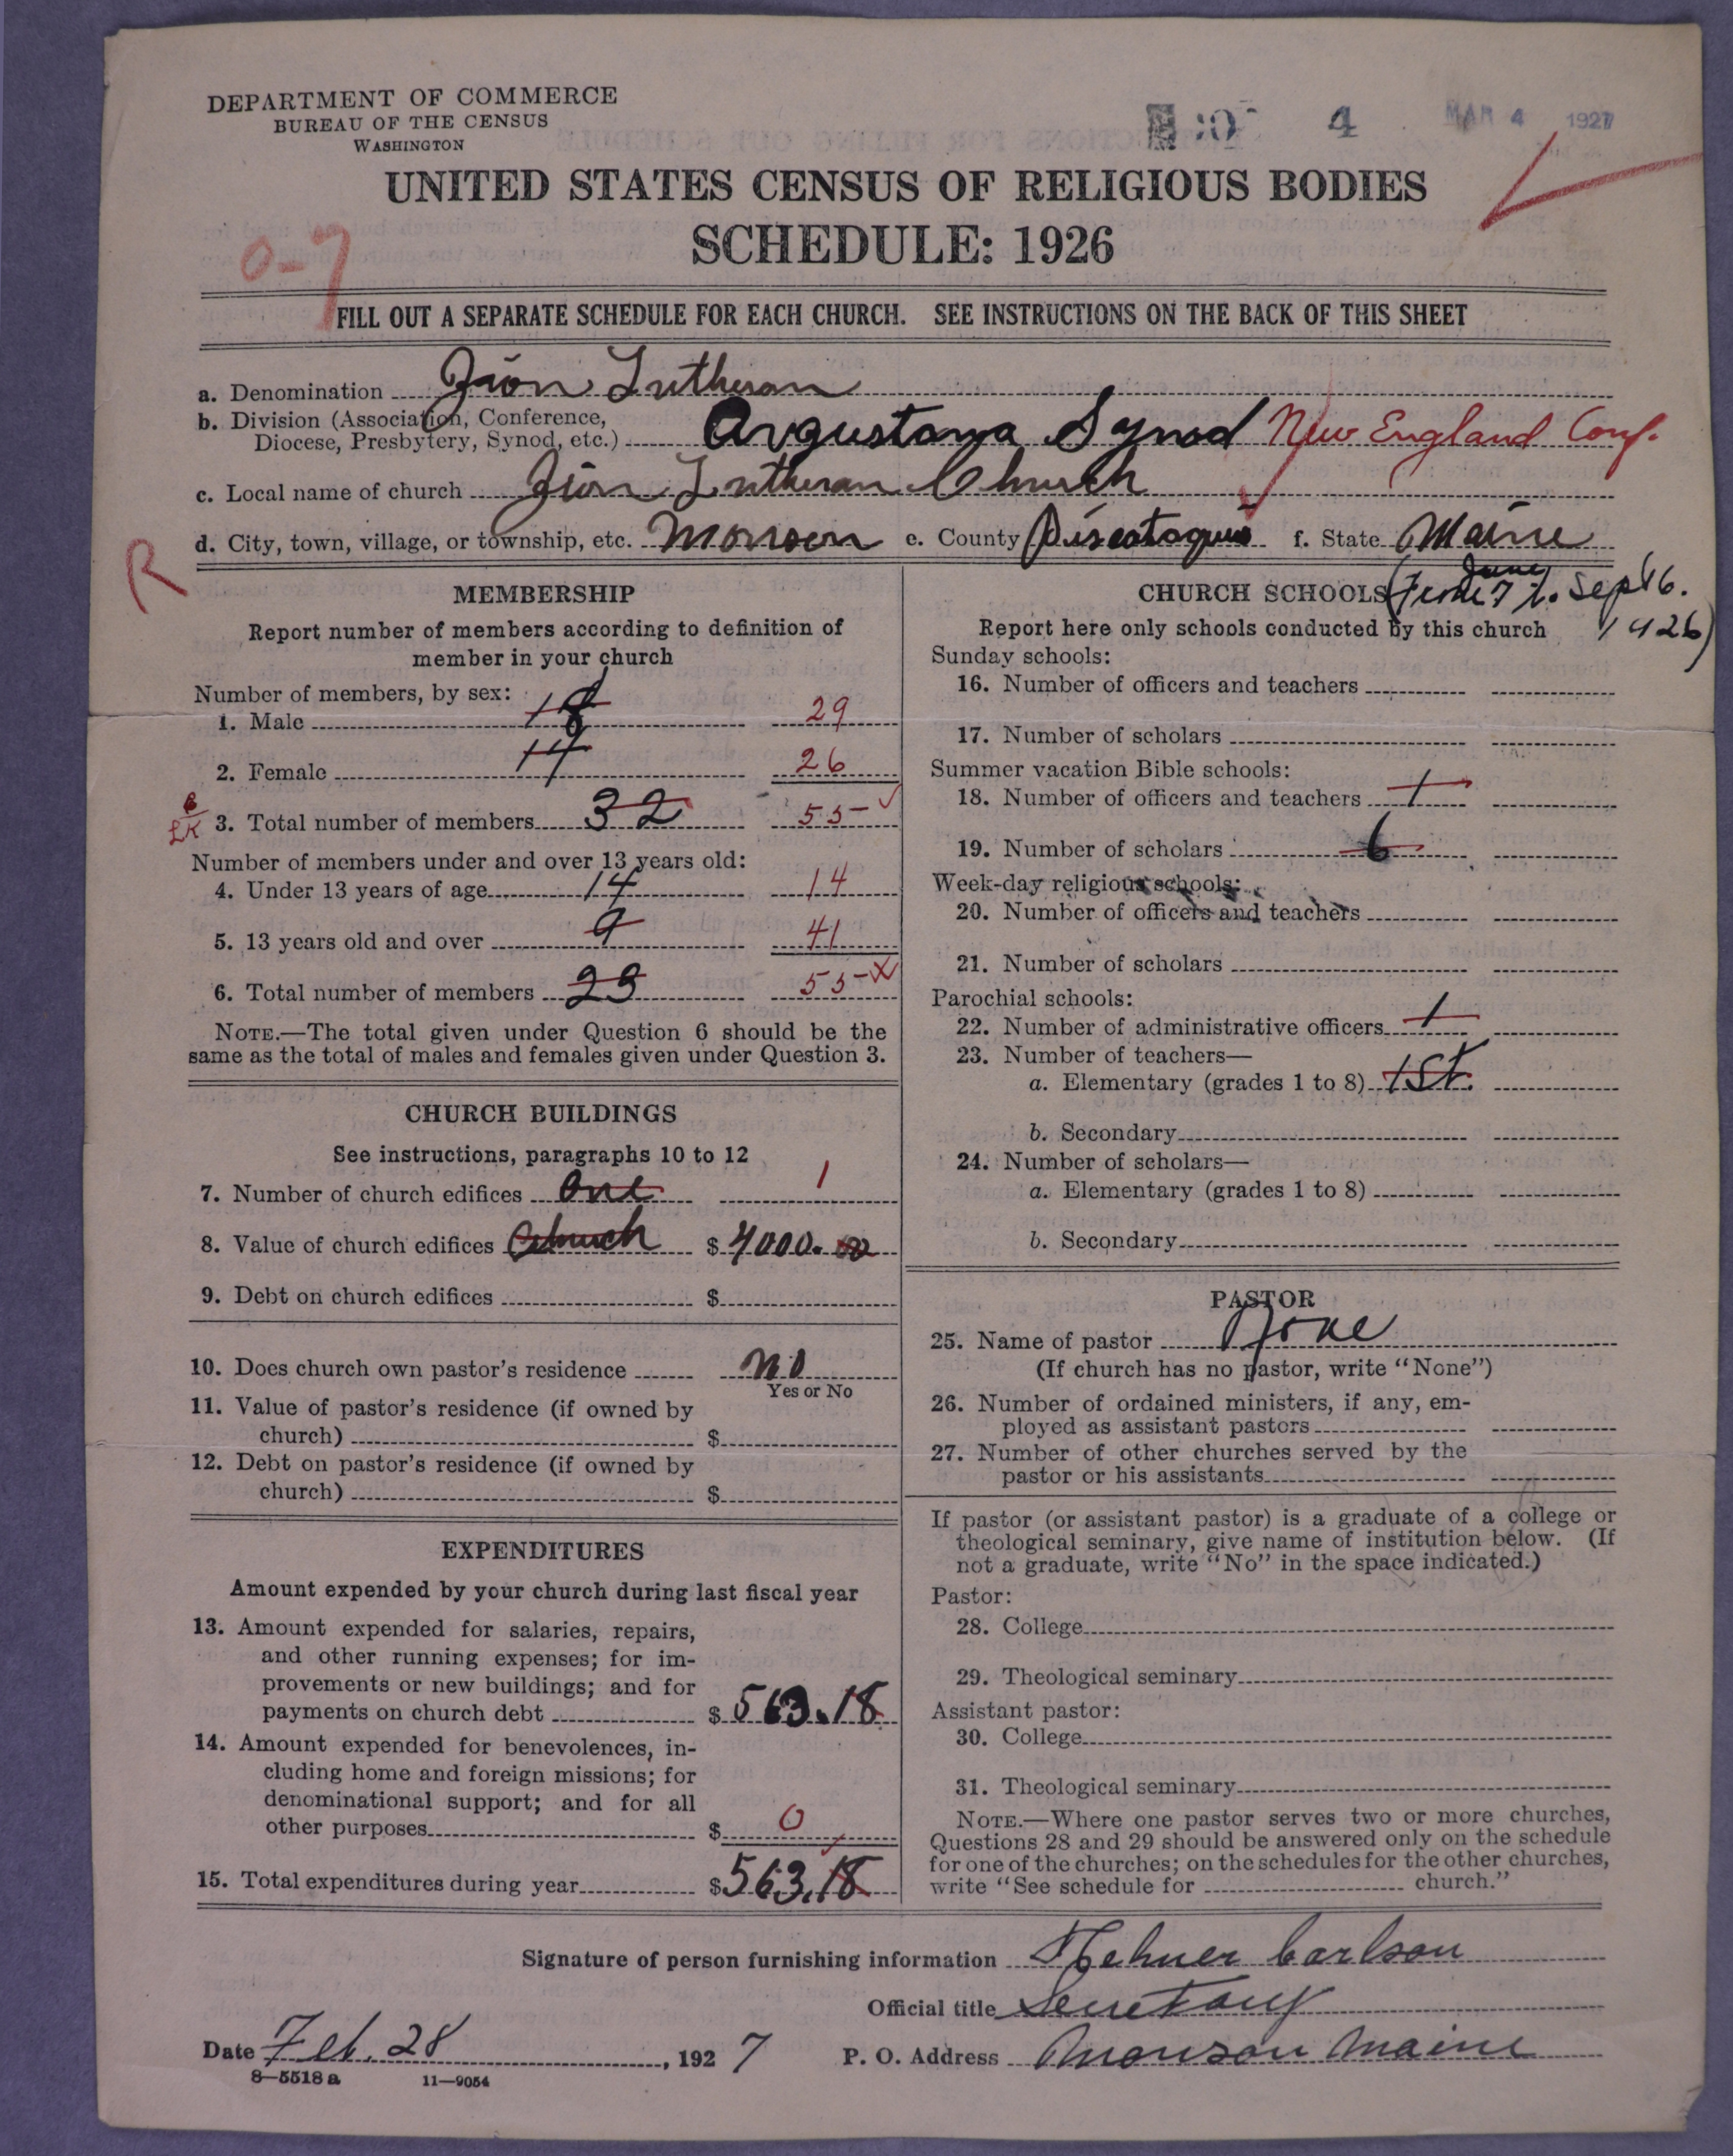 DEPARTMENT OF COMMERCE
BUREAU OF THE CENSUS
WASHINGTON
4 MAR 4 1927
UNITED STATES CENSUS OF RELIGIOUS BODIES
SCHEDULE: 1926
0-7
FILL OUT A SEPARATE SCHEDULE FOR EACH CHURCH. SEE INSTRUCTIONS ON THE BACK OF THIS SHEET
a. Denomination Zion Lutheran
b. Division (Association, Conference,
Diocese, Presbytery, Synod, etc.) Augustana Synod New England Conf.
c. Local name of church Zion Lutheran Church
d. City, town, village, or township, etc. Monson e. County Piscataquis f. State Maine
R
MEMBERSHIP
Report number of members according to definition of
member in your church
Number of members, by sex:
1. Male 18 29
2. Female 14 26
3. Total number of members 32 55
Number of members under and over 13 years old:
4. Under 13 years of age 14 14
5. 13 years old and over 9 41
6. Total number of members 23 55
NOTE.—The total given under Question 6 should be the
same as the total of males and females given under Question 3.
CHURCH BUILDINGS
See instructions, paragraphs 10 to 12
7. Number of church edifices One 1
8. Value of church edifices Church $ 4000.00
9. Debt on church edifices $
10. Does church own pastor's residence No
Yes or No
11. Value of pastor's residence (if owned by
church) $
12. Debt on pastor's residence (if owned by
church) $
EXPENDITURES
Amount expended by your church during last fiscal year
13. Amount expended for salaries, repairs,
and other running expenses; for im-
provements or new buildings; and for
payments on church debt $ 563.18
14. Amount expended for benevolences, in-
cluding home and foreign missions; for
denominational support; and for all
other purposes $ 0
15. Total expenditures during year $ 563.18
CHURCH SCHOOLS (June 7 to Sept 6.
1926)
Report here only schools conducted by this church
Sunday schools:
16. Number of officers and teachers
17. Number of scholars
Summer vacation Bible schools:
18. Number of officers and teachers 1
19. Number of scholars 6
Week-day religious schools:
20. Number of officers and teachers
21. Number of scholars
Parochial schools:
22. Number of administrative officers 1
23. Number of teachers—
a. Elementary (grades 1 to 8) 1st.
b. Secondary
24. Number of scholars—
a. Elementary (grades 1 to 8)
b. Secondary
PASTOR
25. Name of pastor None
(If church has no pastor, write "None")
26. Number of ordained ministers, if any, em-
ployed as assistant pastors
27. Number of other churches served by the
pastor or his assistants
If pastor (or assistant pastor) is a graduate of a college or
theological seminary, give name of institution below. (If
not a graduate, write "No" in the space indicated.)
Pastor:
28. College
29. Theological seminary
Assistant pastor:
30. College
31. Theological seminary
NOTE.—Where one pastor serves two or more churches,
Questions 28 and 29 should be answered only on the schedule
for one of the churches; on the schedules for the other churches,
write "See schedule for church."
Signature of person furnishing information Carlson
Official title Secretary
Date Feb. 28, 1927 P. O. Address Monson Maine
8—5518a 11—9054